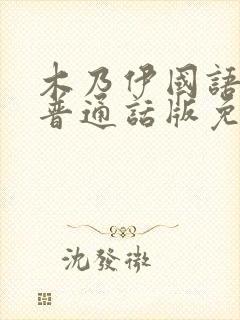 木乃伊國語
普通話版免
沈發微